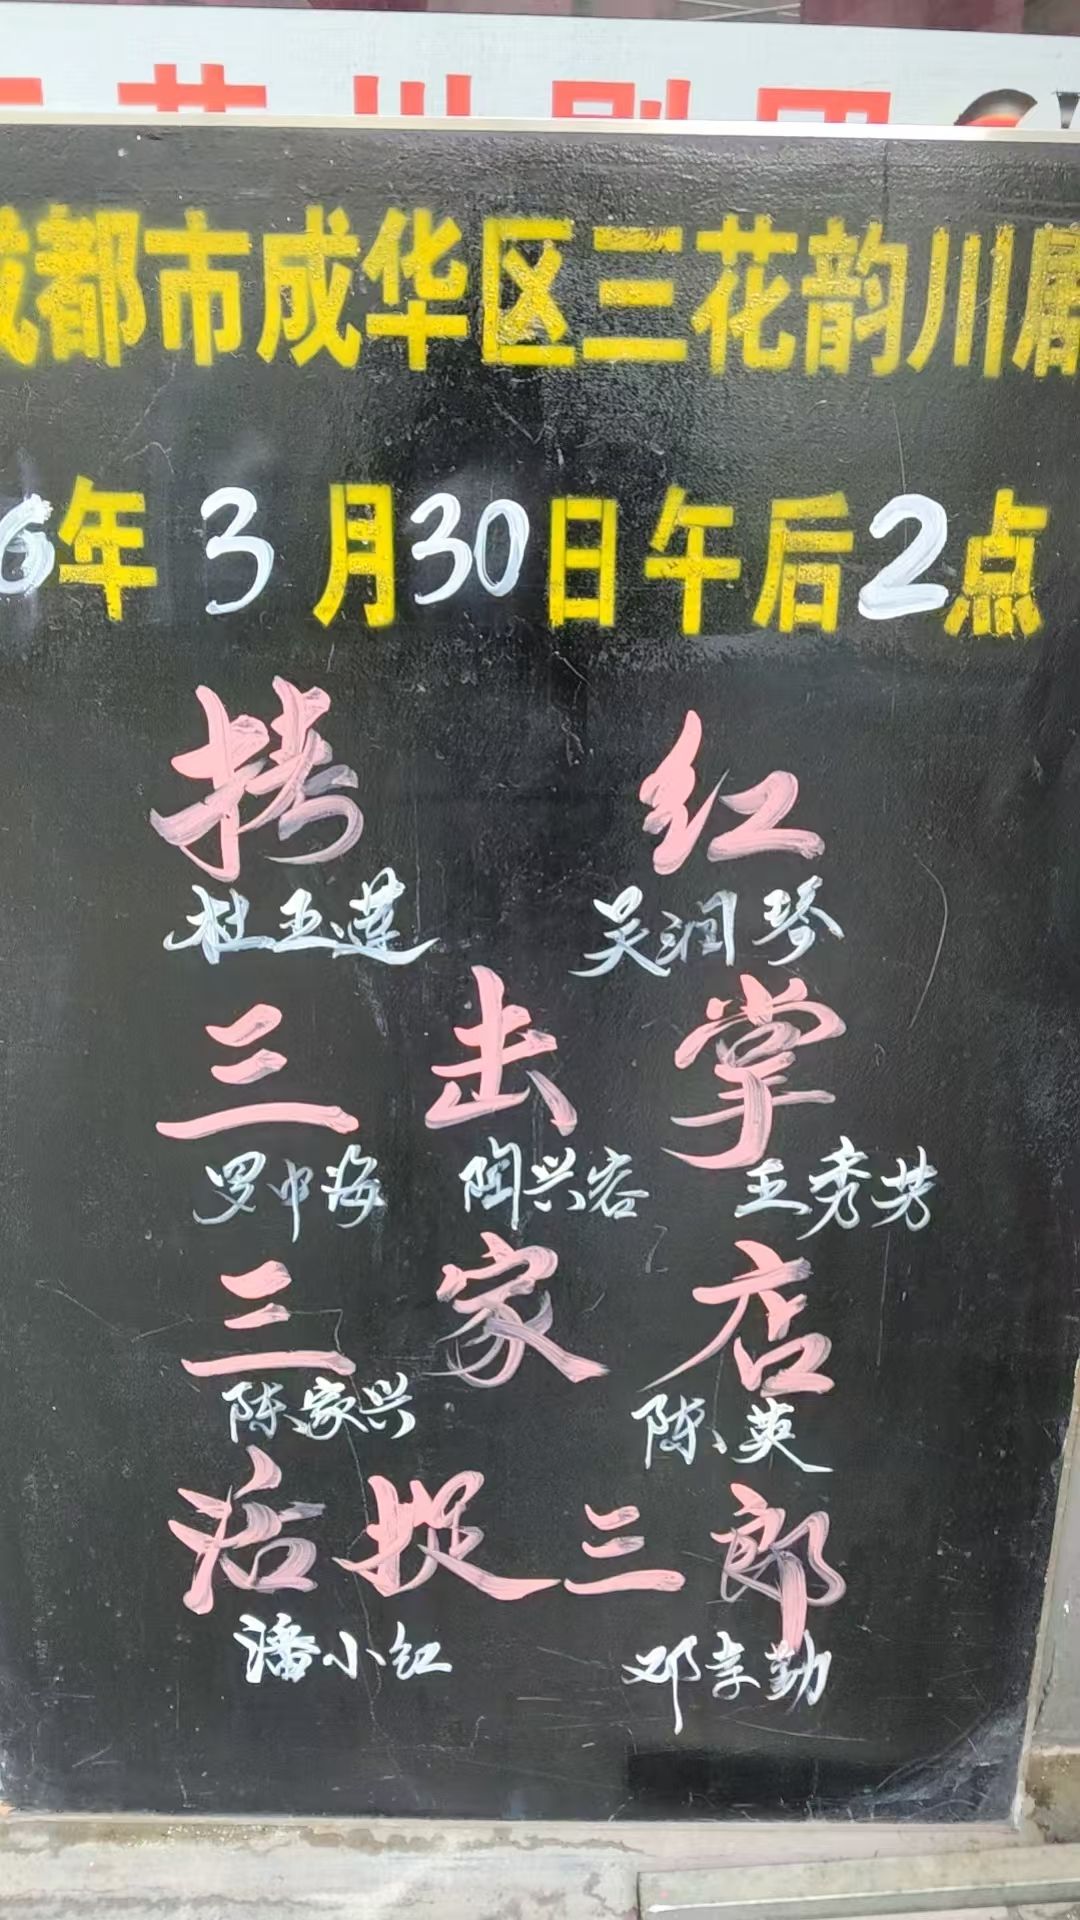 都市成华区三花韵川
6年3月30日午后2点
拷红
杜玉莲 吴润琴
三击掌
罗中海 陶兴容 王秀芳
三家店
陈家兴 陈英
活捉三郎
潘小红 邓孝勤